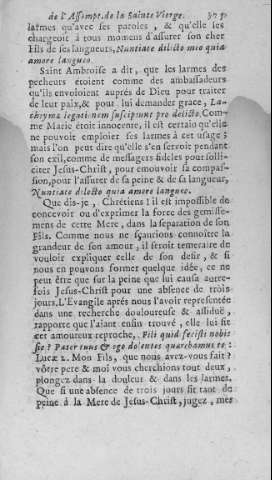 de l'Assompt. de la Sainte Vierge.
larmes qu'avec ses paroles, & qu'elle les
chargeoit à tous momens d'assurer son cher
Fils de ses langueurs, Nuntiate dilecto meo quia
amore langueo.
Saint Ambroise a dit, que les larmes des
pecheurs étoient comme des ambassadeurs
qu'ils envoloient auprés de Dieu pour traiter
de leur paix, & pour lui demander grace, La-
chrymæ legati nem suscipunt pro delicto. Com-
me Marie étoit innocente, il est certain qu'elle
ne pouvoit emploier ses larmes à cet usage ;
mais l'on peut dire qu'elle s'en servoit pendant
son exil, comme de messagers fideles pour solli-
citer Jesus-Christ, pour émouvoir sa compas-
sion, pour l'assurer de sa peine & de sa langueur,
Nuntiate dilecto quia amore langueo.
Que dis-je, Chrétiens ! il est impossible de
concevoir ou d'exprimer la force des gemisse-
mens de cette Mere, dans la separation de son
Fils. Comme nous ne sçaurions connoître la
grandeur de son amour, il seroit temeraire de
vouloir expliquer celle de son desir, & si
nous en pouvons former quelque idée, ce ne
peut être que sur la peine que lui causa autre-
fois Jesus-Christ pour une absence de trois
jours. L'Evangile aprés nous l'avoir representée
dans une recherche douloureuse & assiduë,
rapporte que l'aiant ensin trouvé, elle lui fit
cet amoureux reproche, Fili quid fecisti nobis
sic ? Pater tuus & ego dolentes quærebamus te :
Lucæ 2. Mon Fils, que nous avez-vous fait ?
vôtre pere & moi vous cherchions tout deux,
plongez dans la douleur & dans les larmes.
Que si une absence de trois jours fit tant de
peine à la Mere de Jesus-Christ, jugez, mes